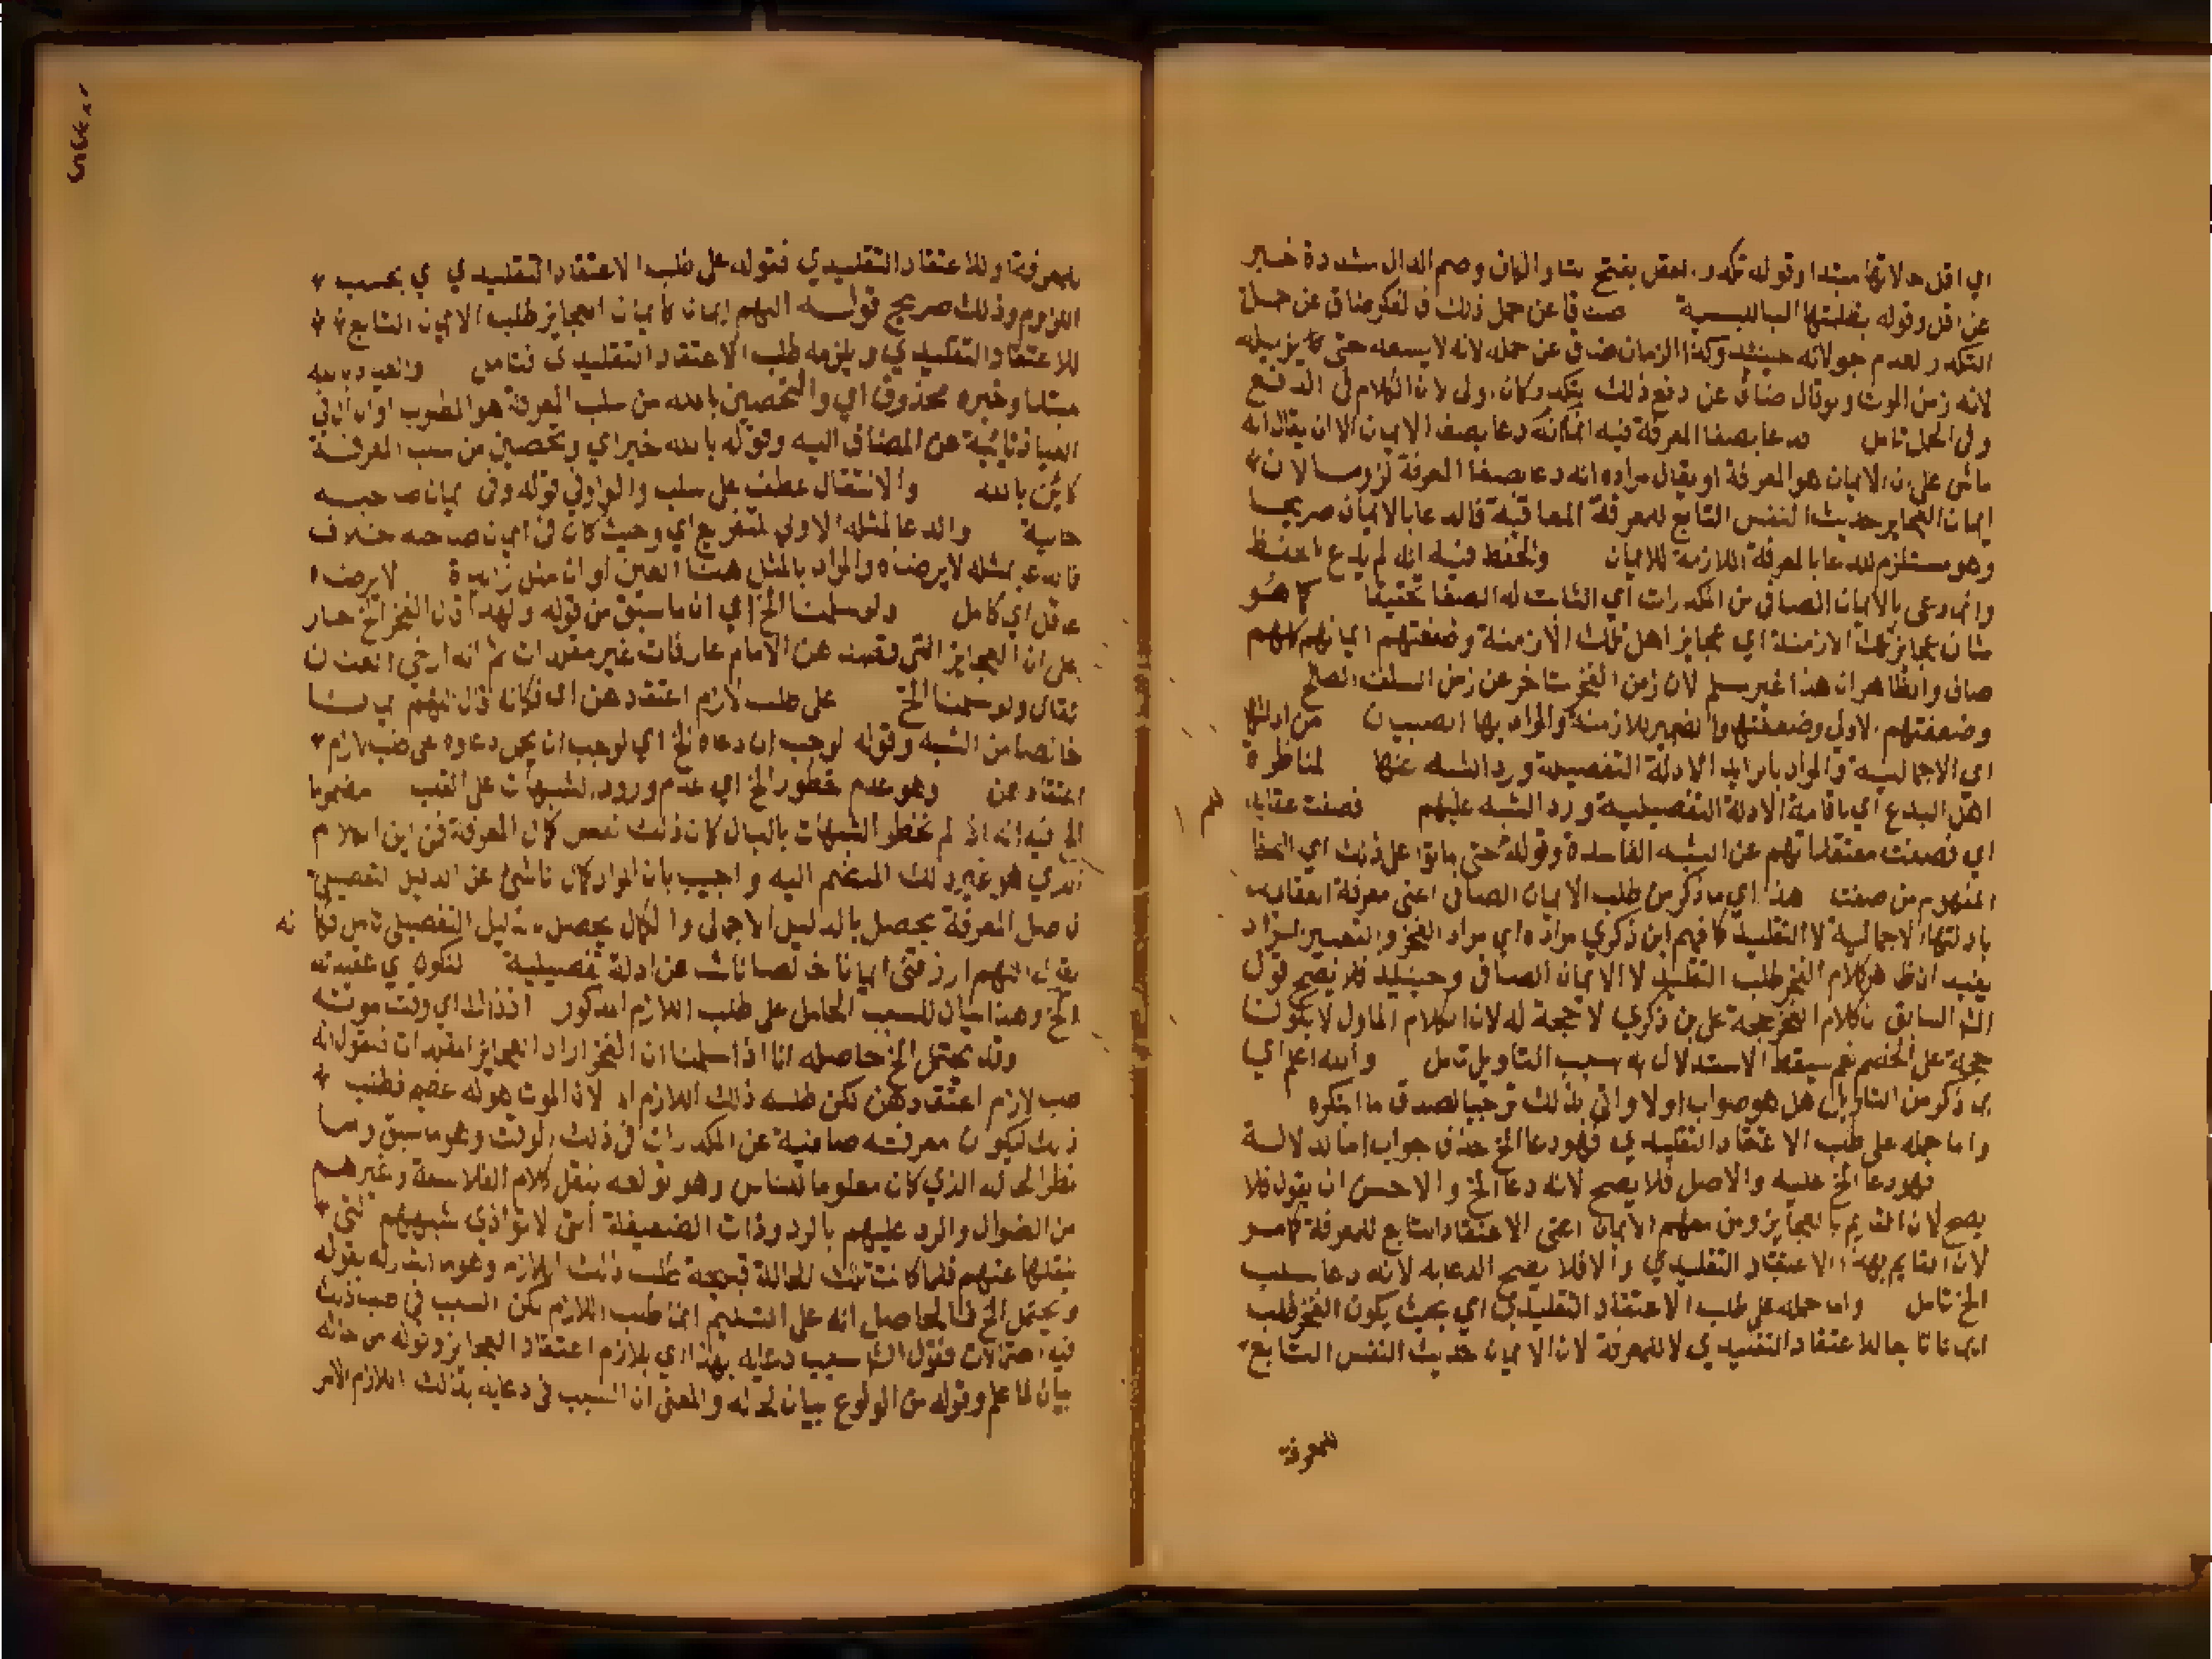 اي اقل حالاتها مبتدا وقوله تكدر العقل بفتح التا والكاف وضم الدال مشددة خبر
عن اقل وقوله بغلبتها البا للسببية ضاق عن حمل ذلك فالفكر ضاق عن حمل
التكدر لعدم جولانه حينئذ وكذا الزمان ضاق عن حمله لانه لا يسعه حتى يزيله
لانه زمن الموت ولو قال ضاق عن دفع ذلك التكدر كان اولى لان الكلام في الدفع
لا في الحمل تامل قد دعا بصفا المعرفة فيه انما دعا بصفا الايمان الا ان يقال انه
ماش على ان الايمان هو المعرفة او يقال مراده انه دعا بصفا المعرفة لزوما لان
ايمان العجايز حديث النفس التابع للمعرفة فالدعا بالايمان صريحا
وهو مستلزم للدعا بالمعرفة اللازمة للايمان والحفظ فيه انه لم يدع بالحفظ
وانما دعى بالايمان الصافي من المكدرات اي الثابت له الصفا تحقيقا كما هو
شان عجايز تلك الازمنة اي عجايز اهل تلك الازمنة وضعفتهم اي
صاف والظاهر ان هذا غير مسلم لان زمن الفخر متاخر عن زمن السلف الصالح
وضعفتهم الاولى وضعفتها والضمير للازمنة والمراد بها الصبيان من ادلتها
اي الاجمالية والمراد بايراد الادلة التفصيلية ورد الشبه عنها لمناظرة
اهل البدع اي باقامة الادلة التفصيلية ورد الشبه عليهم فصفت عقايدهم
اي فصفت معتقداتهم عن الشبه الفاسدة وقوله حتى ماتوا على ذلك اي الصفا
المفهوم من صفت هذا اي ما ذكر من طلب الايمان الصافي اعني معرفة العقايد
بادلتها الاجمالية لا التقليد كما فهم ابن ذكري مراده اي مراد الفخر والتعبير بمراد
يفيد ان ظاهر كلام الفخر طلب التقليد لا الايمان الصافي وحينئذ فلا يصح قول
الش السابق ان كلام الفخر حجة على ابن ذكري لا حجة له لان الكلام الماول لا يكون
حجة على الخصم نعم يسقط الاستدلال به بسبب التاويل تامل والله اعلم اي
بما ذكر من التاويل هل هو صواب اولا واتى بذلك ترجيا لصدق ما ابتكره
واما حمله على طلب الاعتقاد التقليدي فهو دعا الخ حذف جواب اما لدلالة
فهو دعا الخ عليه والاصل فلا يصح لانه دعا الخ والاحسن ان يقول فلا
يصح لان القايم بالعجايز ومن معهم الايمان اعني الاعتقاد التابع للمعرفة كما مر
لان القايم بهم الاعتقاد التقليدي والا فلا يصح الدعا به لانه دعا بسلب
الخ تامل واما حمله على طلب الاعتقاد التقليدي اي بحيث يكون الفخر طلب
ايمانا تابعا للاعتقاد التقليدي لا للمعرفة لان الايمان حديث النفس التابع
للمعرفة
للمعرفة او للاعتقاد التقليدي فقوله على طلب الاعتقاد التقليدي اي بحسب
اللزوم وذلك صريح قوله اللهم ايمان كايمان العجايز طلب الايمان التابع
للاعتقاد التقليدي ويلزمه طلب الاعتقاد التقليدي فتامل والعياذ بالله
مبتدا وخبره محذوف اي والتحصين بالله من سلب المعرفة هو المطلوب او ان ال في
العياذ نائبة عن المضاف اليه وقوله بالله خبر اي وتحصين من سلب المعرفة
كائن بالله والانتقال عطف على سلب والواو في قوله وفي ايمان صاحبه
حالية والدعا بمثله الاولى التفريع اي وحيث كان في ايمان صاحبه خلاف
فالدعا بمثله لا يرضاه والمراد بالمثل هنا العين او ان مثل زايدة لا يرضاه
عاقل اي كامل ولو سلمنا الخ اي ان ما سبق من قوله ولهذا قال الفخر الخ جار
على ان العجايز التي قصد عن الامام عارفات غير مقلدات ثم انه ارخى العنان
فقال ولو سلمنا الخ على طلب لازم اعتقادهن اي فكانه قال اللهم ايمانا
خالصا من الشبه وقوله لوجب ان دعاه الخ اي لوجب ان يحمل دعاوه على طلب لازم
اعتقادهن وهو عدم خطور الخ اي عدم ورود الشبهات على القلب مضموما
الخ فيه انه اذا لم تخطر الشبهات بالبال كان ذلك نفس كمال المعرفة فمن اين الكلام
الذي هو غير ذلك المنضم اليه واجيب بان المراد كمال ناشئ عن الدليل التفصيلي
فاصل المعرفة يحصل بالدليل الاجمالي والكمال يحصل بالدليل التفصيلي تامل فكانه
يقول اللهم ارزقني ايمانا خالصا ناشئا عن ادلة تفصيلية لتكون في عقيدته
الخ وهذا بيان للسبب الحامل على طلب اللازم المذكور اذ ذاك اي وقت موته
وقد يحتمل الخ حاصله انا اذا سلمنا ان الفخر اراد العجايز المقلدات فنقول انه
طلب لازم اعتقادهن لكن طلبه ذلك اللازم اما لان الموت هوله عظيم فطلب
ذلك لتكون معرفته صافية عن المكدرات في ذلك الوقت وهو ما سبق واما
نظرا لحاله الذي كان معلوما للناس وهو تولعه بنقل كلام الفلاسفة وغيرهم
من الضوال والرد عليهم بالردودات الضعيفة التي لا توازي شبههم التي
ينقلها عنهم فلما كانت تلك الحالة قبيحة طلب ذلك اللازم وهو ما اشار له بقوله
ويحتمل الخ فالحاصل انه على التسليم انما طلب اللازم لكن السبب في طلب ذلك
فيه احتمالات فقول الش سبب دعايه بهذا اي بلازم اعتقاد العجايز وقوله من حاله
بيان لما علم وقوله من الولوع بيان لحاله والمعنى ان السبب في دعايه بذلك اللازم الامر